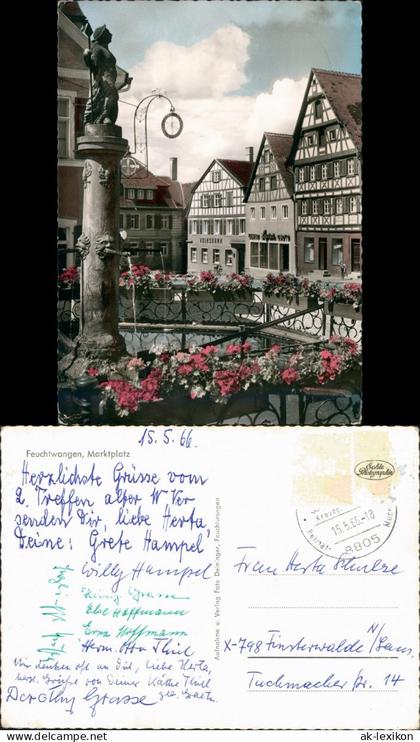 VOLKSBANK
15.5.66.
Feuchtwangen, Marktplatz
Echte Photographie
Herzlichste Grüsse vom
2. Treffen alter W Ver
senden Dir, liebe Herta
Deine: Grete Hampel
Willy Hampel
Grasse
Else Hoffmann
Erna Hoffmann
Herm. Otto Thiel
Wir denken oft an Dich, liebe Herta,
herz. Grüße von Deiner Käthe Thiel
geb.
Dorothy Grasse
Aufnahme u. Verlag Foto Deininger, Feuchtwangen
15.5.66-18
8805
Frau Herta Schulze
X-798 Finsterwalde N/Laus.
Tuchmacher Str. 14
www.ak-lexikon.com
© ak-lexikon.com